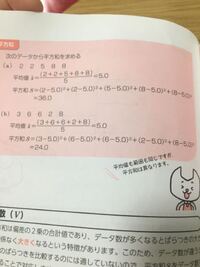 平方和
次のデータから平方和を求める
(a) 2 2 5 8 8
平均値 x̄=(2+2+5+8+8)/5=5.0
平方和 S=(2-5.0)²+(2-5.0)²+(5-5.0)²+(8-5.0)²+(8-5.0)²
=36.0
(b) 3 6 6 2 8
平均値 x̄=(3+6+6+2+8)/5=5.0
平方和 S=(3-5.0)²+(6-5.0)²+(6-5.0)²+(2-5.0)²+(8-5.0)²
=24.0
平均値も範囲も同じですが、
平方和は異なります。
数(V)
和は偏差の2乗の合計値であり、データ数が多くなるとばらつきの
係なく大きくなるという特徴があります。このため、データ数が違う
ばらつきを比較するのには適していないので、